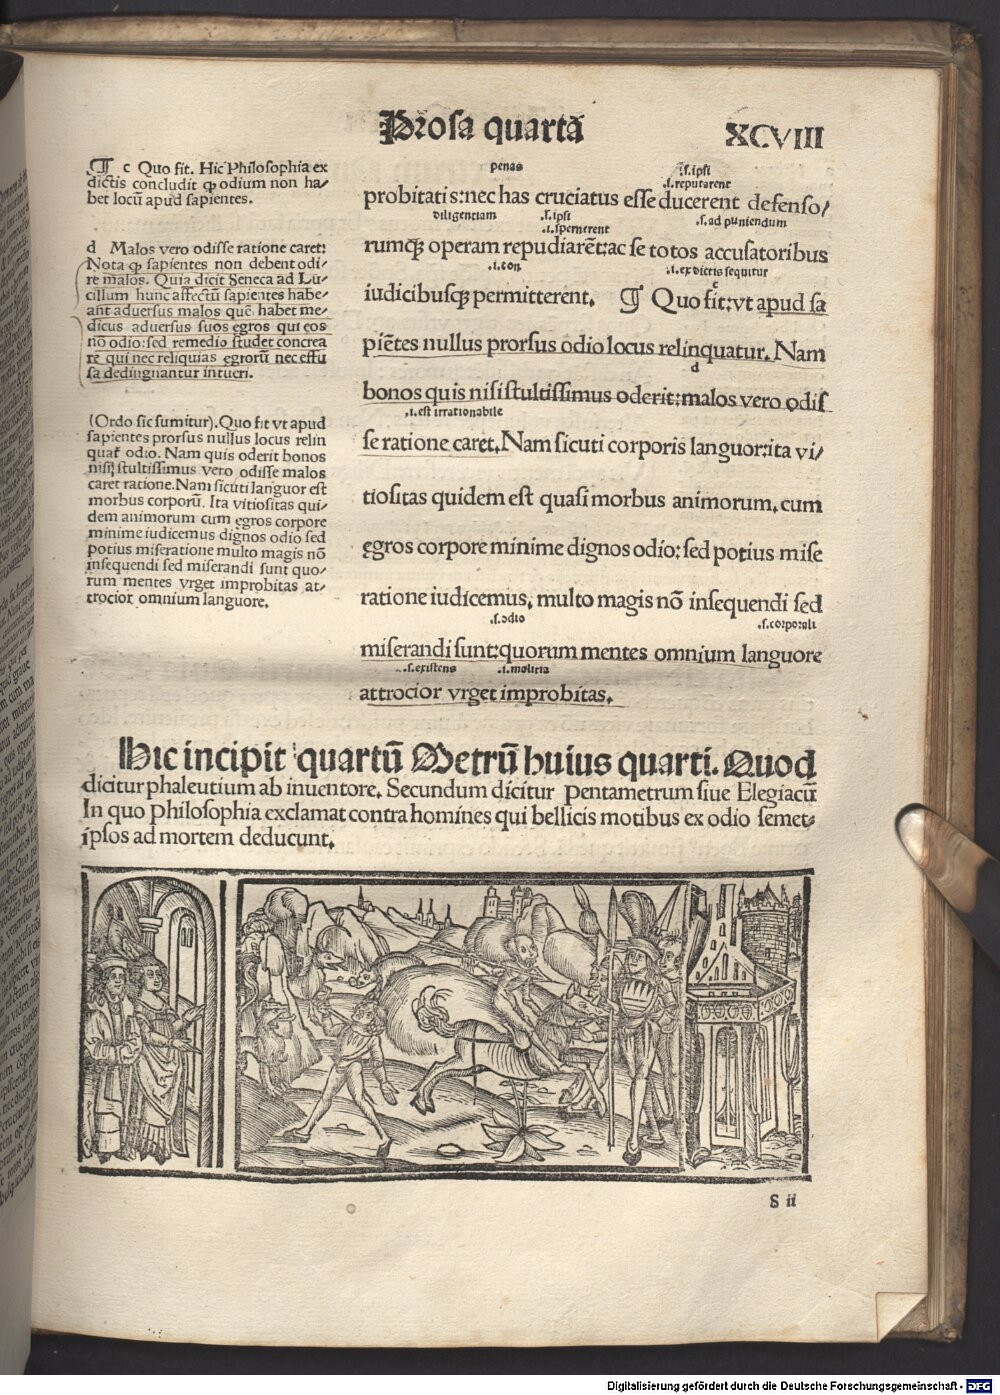 Prosa quarta
XCVIII
¶ c Quo fit. Hic Philosophia ex
dictis concludit ꝙ odium non ha⸗
bet locū apud sapientes.
d Malos vero odisse ratione caret:
Nota ꝙ sapientes non debent odi⸗
re malos. Quia dicit Seneca ad Lu⸗
cillum hunc affectū sapientes habe⸗
ant aduersus malos quē habet me⸗
dicus aduersus suos egros qui eos
nō odio: sed remedio studet concrea
re qui nec reliquias egrorū nec effu
sa dedingnantur intueri.
(Ordo sic sumitur). Quo fit vt apud
sapientes prorsus nullus locus relin
quat̄ odio. Nam quis oderit bonos
nisi stultissimus vero odisse malos
caret ratione. Nam sicuti languor est
morbus corporū. Ita vitiositas qui⸗
dem animorum cum ęgros corpore
minime iudicemus dignos odio sed
potius miseratione multo magis nō
insequendi sed miserandi sunt quo⸗
rum mentes vrget improbitas at⸗
trocior omnium languore.
penas
.s. ipsi
.s. reputarent
probitatis: nec has cruciatus esse ducerent defenso⸗
diligentiam
.s. ipsi
.i. spernerent
.s. ad puniendum
rumqꝫ operam repudiarēt: ac se totos accusatoribus
.i. con
.i. ex dictis sequitur
c
iudicibusqꝫ permitterent. ¶ Quo fit: vt apud sa
piētes nullus prorsus odio locus relinquatur. Nam
d
bonos quis nisi stultissimus oderit: malos vero odis
.i. est irrationabile
se ratione caret. Nam sicuti corporis languor: ita vi⸗
tiositas quidem est quasi morbus animorum. cum
ęgros corpore minime dignos odio: sed potius mise
ratione iudicemus. multo magis nō insequendi sed
.s. odio
.s. corporali
miserandi sunt: quorum mentes omnium languore
.s. existens
.i. malicia
attrocior vrget improbitas.
Hic incipit quartū Metrū huius quarti. Quod
dicitur phaleutium ab inuentore. Secundum dicitur Pentametrum siue Elegiacū
In quo Philosophia exclamat contra homines qui bellicis motibus ex odio semet⸗
ipsos ad mortem deducunt.
S ii
Digitalisierung gefördert durch die Deutsche Forschungsgemeinschaft - DFG